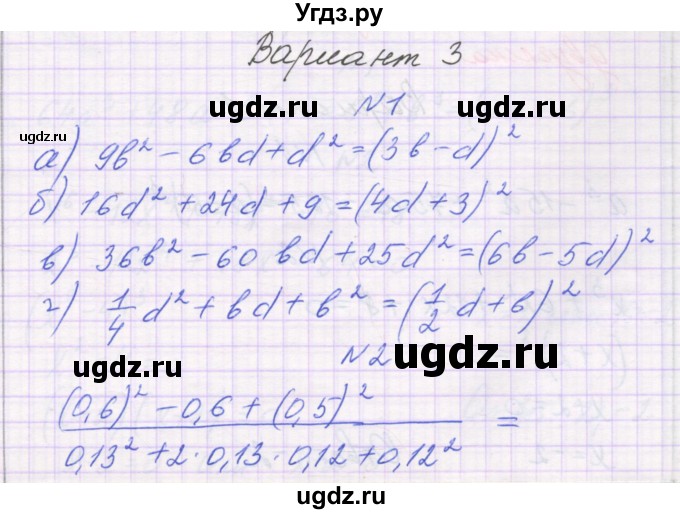 Угдз.ру
Вариант 3
ugdz.ru
ugdz.ru
ugdz.ru
№1
а) 9в² − 6вd + d² = (3в − d)²
б) 16d² + 24d + 9 = (4d + 3)²
в) 36в² − 60вd + 25d² = (6в − 5d)²
г) 1/4 d² + вd + в² = (1/2 d + в)²
ugdz.ru
№2
ugdz.ru
(0,6)² − 0,6 + (0,5)² =
0,13² + 2·0,13·0,12 + 0,12²
ugdz.ru